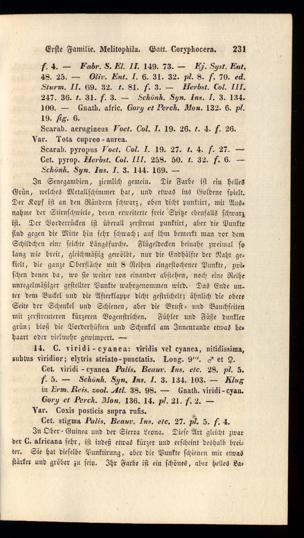 Erste Familie. Melitophila. Gatt. Coryphocera. 231
f. 4. — Fabr. S. El. II. 149. 73. — Ej. Syst. Ent.
48. 25. — Oliv. Ent. I. 6. 31. 32. pl. 8. f. 70. ed.
Sturm. II. 69. 32. t. 81. f. 3. — Herbst. Col. III.
247. 36. t. 31. f. 3. — Schönh. Syn. Ins. I. 3. 134.
100. — Gnath. afric. Gory et Perch. Mon. 132. 6. pl.
19. fig. 6.
Scarab. aerugineus Voet. Col. I. 19. 26. t. 4. f. 26.
Var. Tota cupreo-aurea.
Scarab. pyropus Voet. Col. I. 19. 27. t. 4. f. 27. —
Cet. pyrop. Herbst. Col. III. 258. 50. t. 32. f. 6. —
Schönh. Syn. Ins. I. 3. 144. 169. —
In Senegambien, ziemlich gemein. Die Farbe ist ein helles
Grün, welches Metallschimmer hat, und etwas ins Goldene spielt.
Der Kopf ist an den Rändern schwarz, oben dicht punktirt, mit Aus-
nahme der Stirnschwiele, deren erweiterte freie Spitze ebenfalls schwarz
ist. Der Vorderrücken ist überall zerstreut punktirt, aber die Punkte
sind gegen die Mitte hin sehr schwach; auf ihm bemerkt man vor dem
Schildchen eine seichte Längsfurche. Flügeldecken beinahe zweimal so
lang wie breit, gleichmäßig gewölbt, nur die Endhälfte der Naht ge-
kielt, die ganze Oberfläche mit 8 Reihen eingestochener Punkte, zwi-
schen denen da, wo sie weiter von einander abstehen, noch eine Reihe
unregelmäßiger gestellter Punkte wahrgenommen wird. Das Ende un-
ter dem Buckel und die Afterklappe dicht gestrichelt; ähnlich die obere
Seite der Schenkel und Schienen, aber die Brust- und Bauchseiten
mit zerstreuteren kürzeren Bogenstrichen. Fühler und Füße dunkler
grün; bloß die Vorderhüften und Schenkel am Innenrande etwas be-
haart oder vielmehr gewimpert. —
14. C. viridi-cyanea: viridis vel cyanea, nitidissima,
subtus viridior; elytris striato-punctatis. Long. 9'''. ♂ et ♀.
Cet. viridi-cyanea Palis. Beauv. Ins. etc. 28. pl. 5.
f. 5. — Schönh. Syn. Ins. I. 3. 134. 103. — Klug
in Erm. Reis. zool. Atl. 38. 98. — Gnath. viridi-cyan.
Gory et Perch. Mon. 136. 14. pl. 21. f. 2. —
Var. Coxis posticis supra rufis.
Cet. stigma Palis. Beauv. Ins. etc. 27. pl. 5. f. 4.
In Ober-Guinea und der Sierra Leona. Diese Art gleicht zwar
der C. africana sehr, ist indeß etwas kürzer und erscheint deshalb brei-
ter. Sie hat dieselbe Punktirung, aber die Punkte schienen mir etwas
stärker und gröber zu sein. Ihr Farbe ist ein schönes, aber helles La-